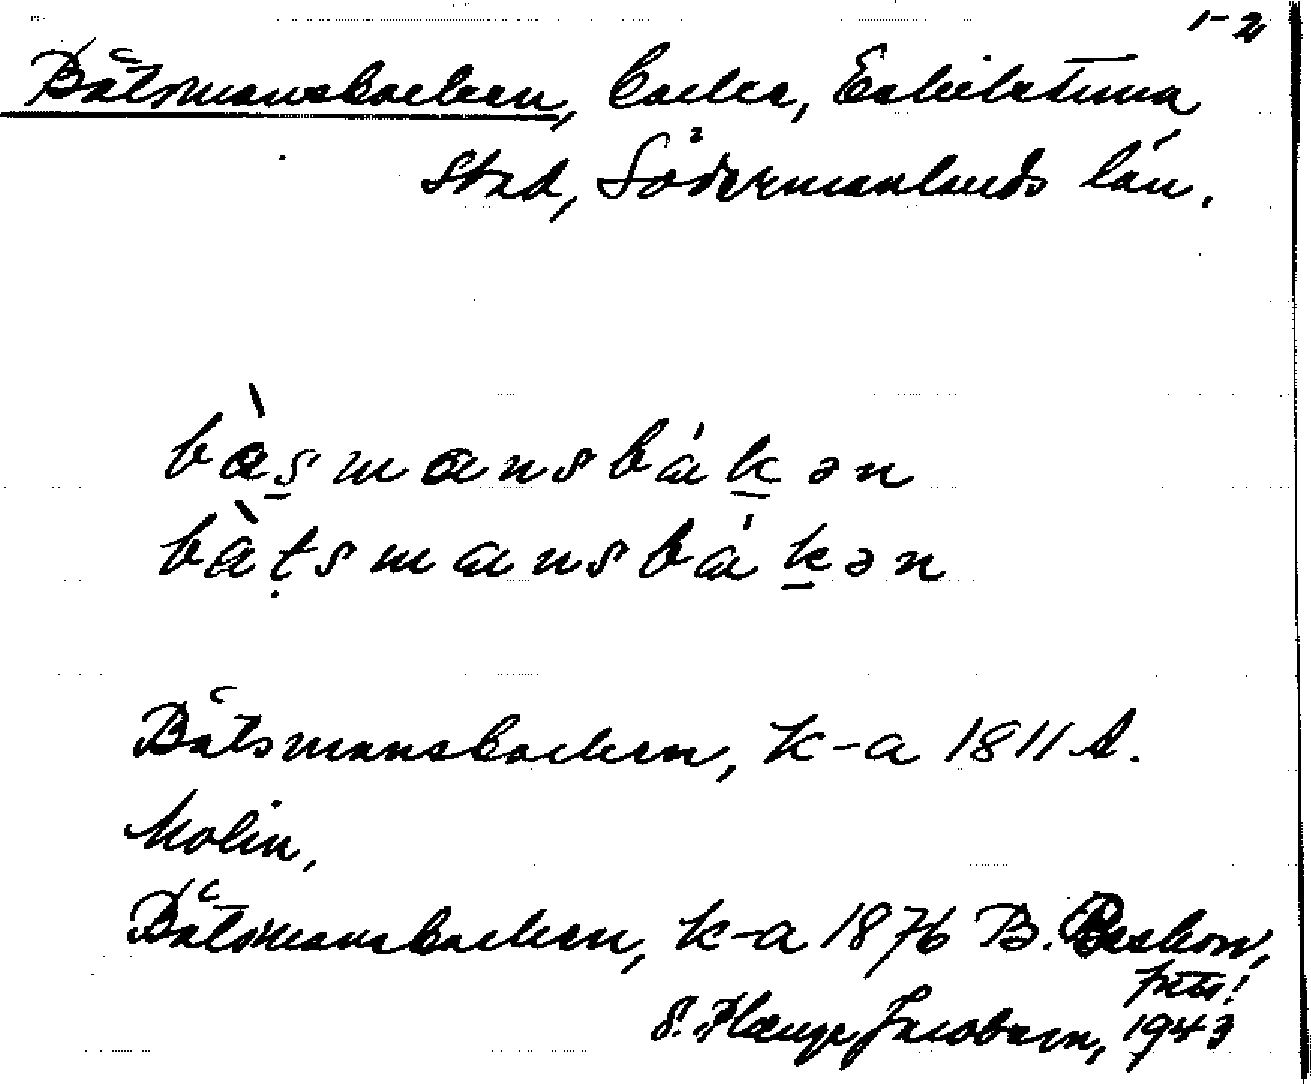 1-2
Båtsmansbacken, backe, Eskilstuna
stad, Södermanlands län.
bàs̱mansbáḵən
bàṭsmansbáḵən
Båtsmansbacken, k-a 1811 A.
Molin,
Båtsmansbacken, k-a 1876 B. Beskow,
1943